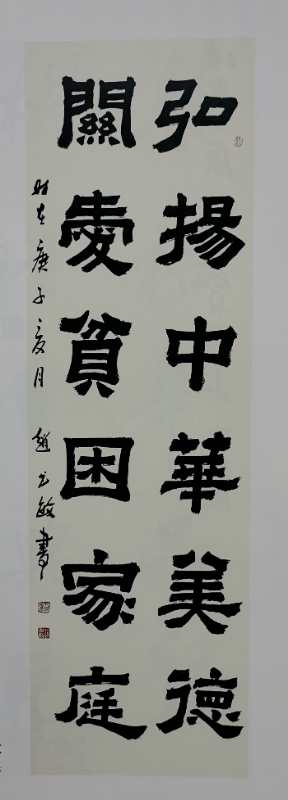 弘揚中華美德
關愛貧困家庭
時在庚子夏月 趙文敏書